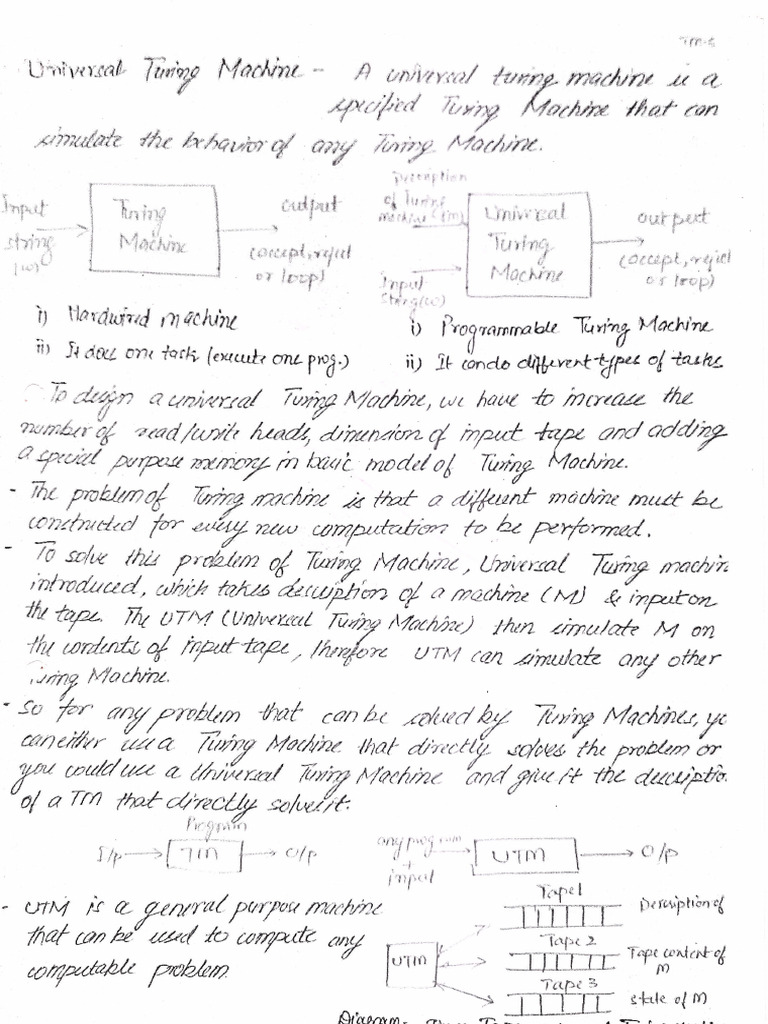 TM-5
Universal Turing Machine - A universal turing machine is a
specified Turing Machine that can
simulate the behavior of any Turing Machine.
Input
string
(w)
Turing
Machine
output
(accept, reject
or loop)
Description
of Turing
machine (M)
Input
String(w)
Universal
Turing
Machine
output
(accept, reject
or loop)
i) Hardwired machine
ii) It does one task (execute one prog.)
i) Programmable Turing Machine
ii) It can do different types of tasks
To design a universal Turing Machine, we have to increase the
number of read/write heads, dimension of input tape and adding
a special purpose memory in basic model of Turing Machine.
- The problem of Turing machine is that a different machine must be
constructed for every new computation to be performed.
- To solve this problem of Turing Machine, Universal Turing machin
introduced, which takes description of a machine (M) & input on
the tape. The UTM (Universal Turing Machine) then simulate M on
the contents of input tape, therefore UTM can simulate any other
Turing Machine.
- So for any problem that can be solved by Turing Machines, yo
can either use a Turing Machine that directly solves the problem or
you could use a Universal Turing Machine and give it the descriptio
of a TM that directly solve it.
Program
I/p
TM
O/p
any program
+
input
UTM
O/p
- UTM is a general purpose machine
that can be used to compute any
computable problem.
UTM
Tape1
Description of
Tape 2
Tape content of
M
Tape 3
state of M
Diagram-